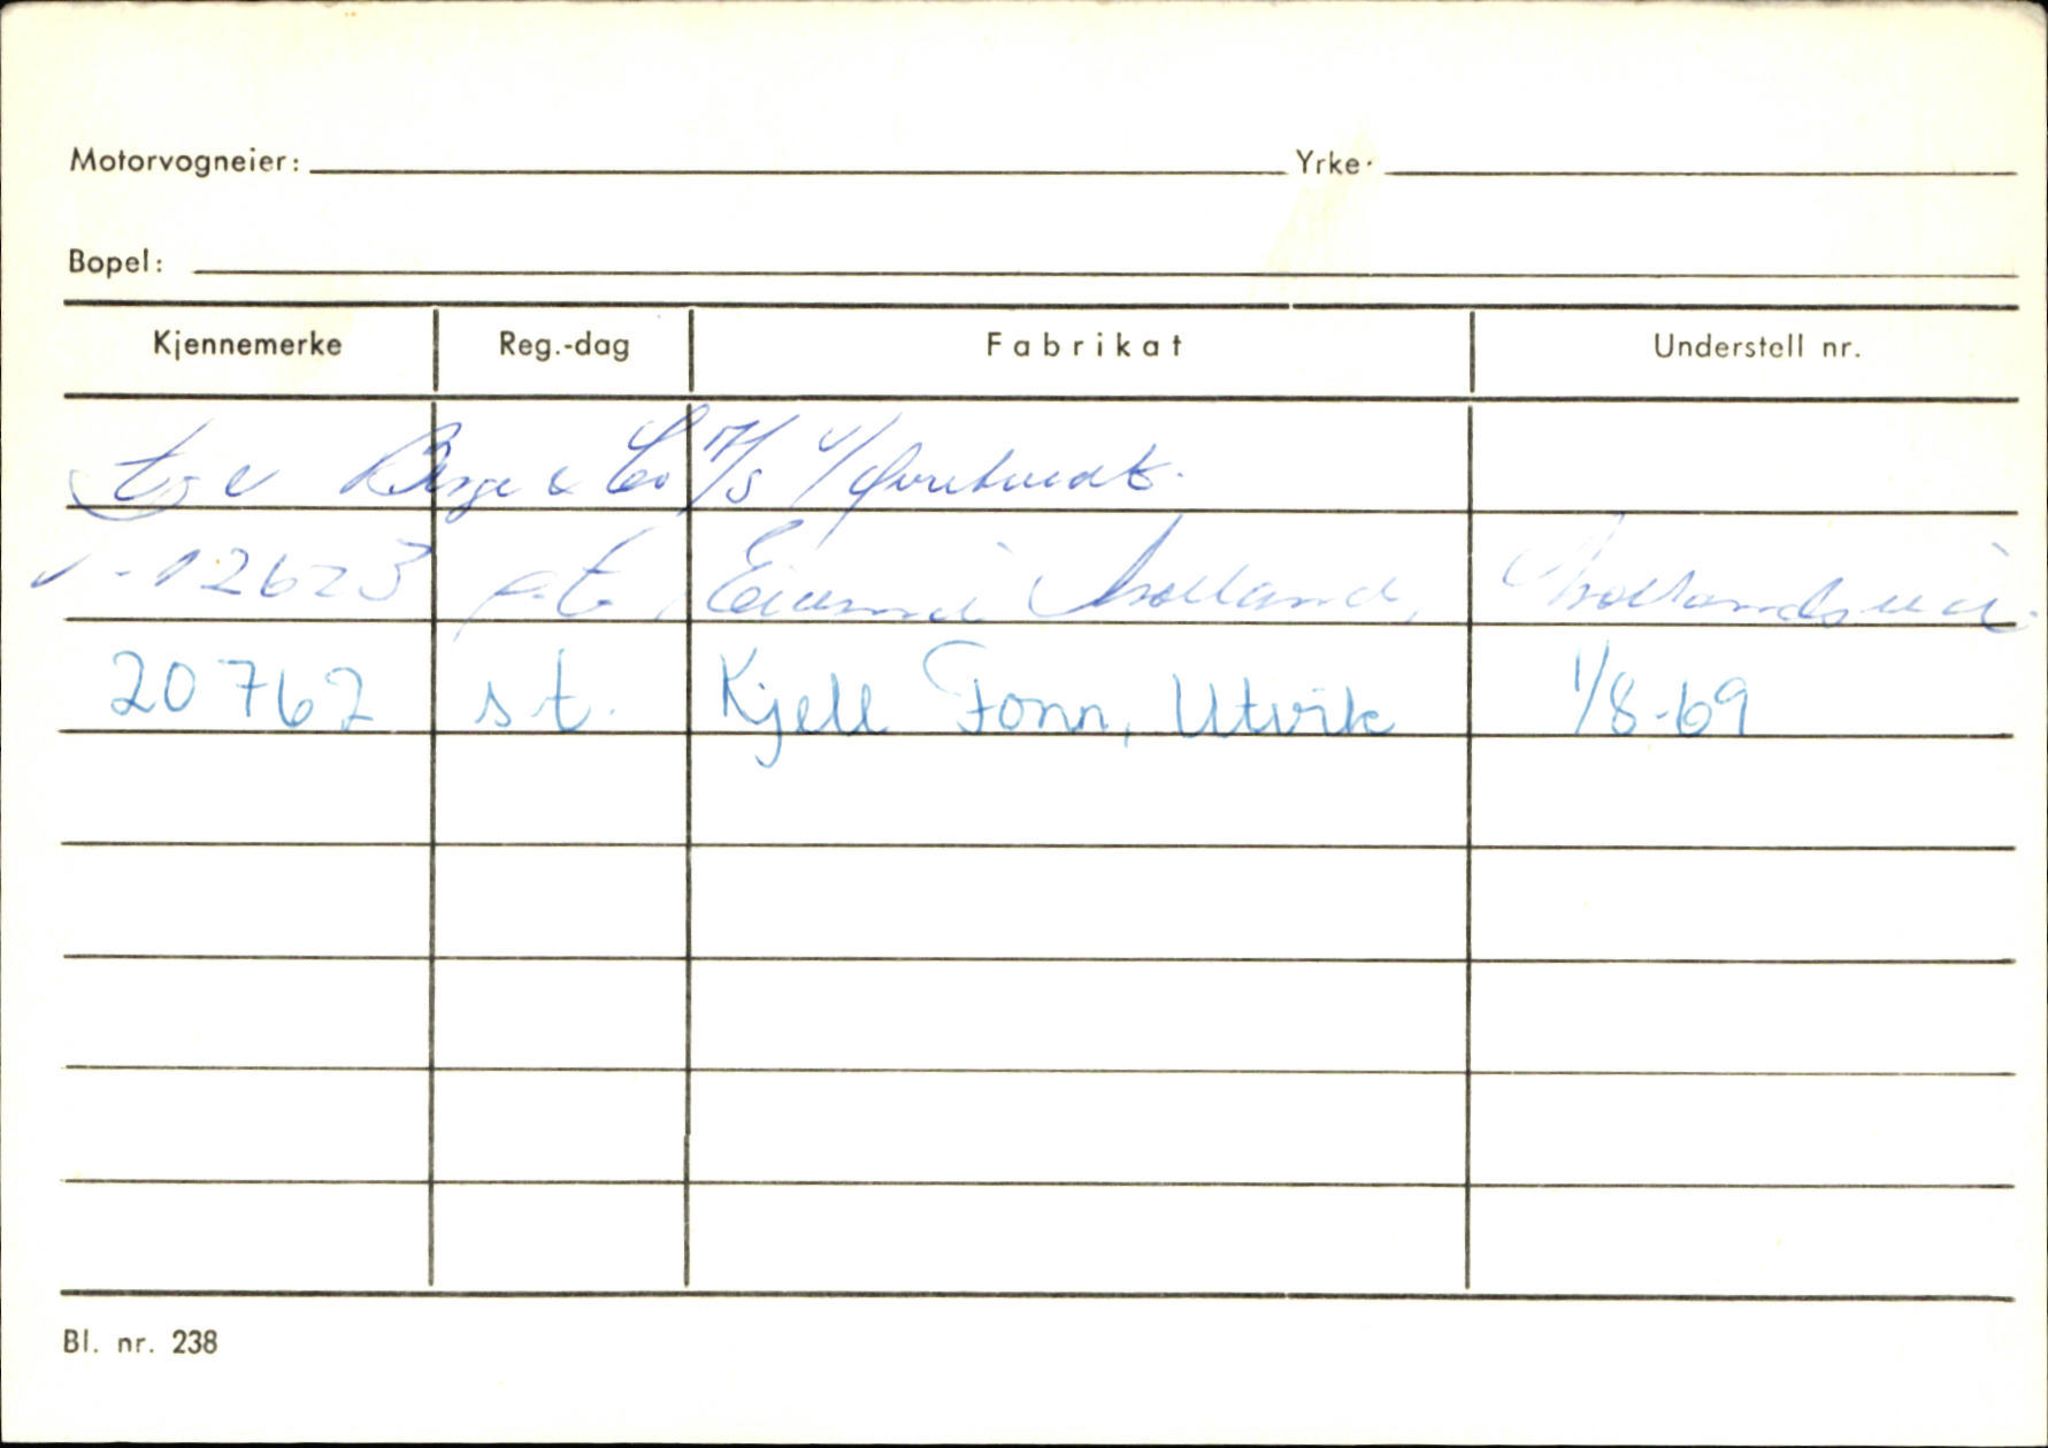 Motorvogneier: Yrke.
Bopel:
Kjennemerke Reg.-dag Fabrikat Understell nr.
Berge & Co A/S
12623 p.t.
20762 s.t. Kjell Fonn, Utvik 1/8-69
Bl. nr. 238